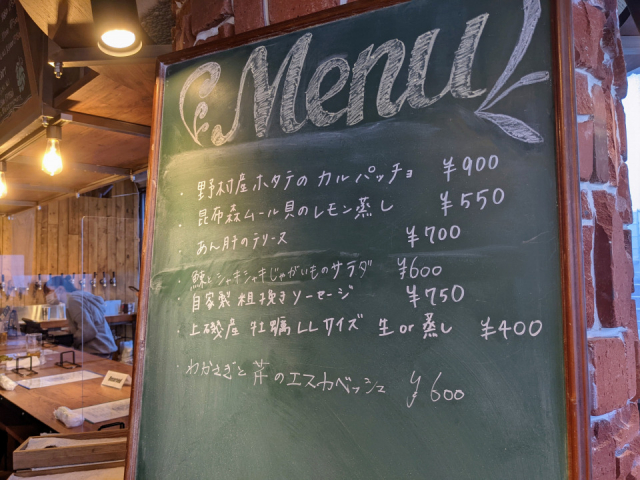 Menu
・野村屋ホタテのカルパッチョ ¥900
・昆布森ムール貝のレモン蒸し ¥550
・あん肝のテリーヌ ¥700
・鯨とシャキシャキじゃがいものサラダ ¥600
・自家製粗挽きソーセージ ¥750
・上磯産 牡蠣LLサイズ 生or蒸し ¥400
・わかさぎと芹のエスカベッシュ ¥600